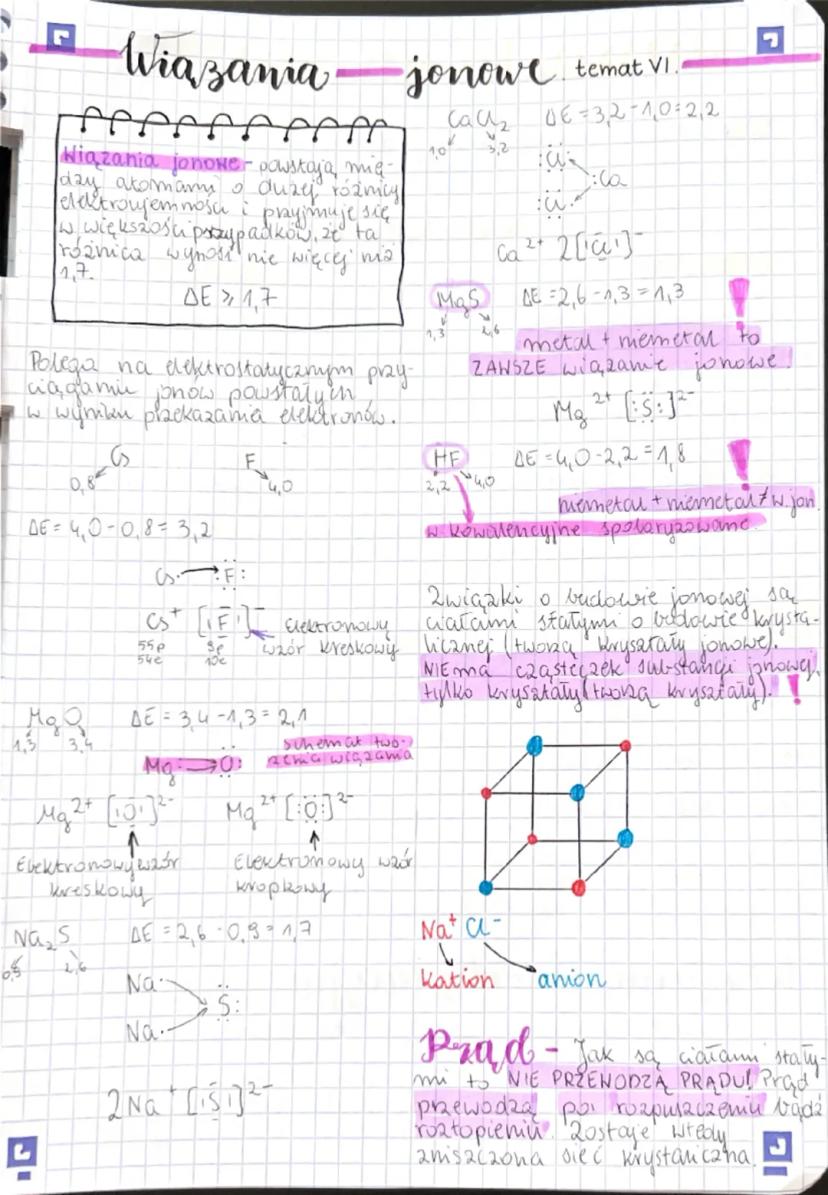 Wiązania jonowe. temat VI.
Wiązania jonowe - powstają mię-
dzy atomami o dużej różnicy
elektroujemności i przyjmuje się
w większości przypadków, że ta
różnica wynosi nie więcej niż
1,7.
ΔE ⩾ 1,7
Polega na elektrostatycznym przy-
ciąganiu jonów powstałych
w wyniku przekazania elektronów.
Cs F
0,8 4,0
ΔE = 4,0 - 0,8 = 3,2
Cs· → F:
Cs⁺ [|F|]⁻ elektronowy
wzór kreskowy
55p 9p
54e 10e
MgO ΔE = 3,4 - 1,3 = 2,1
1,3 3,4
Mg → O: schemat two-
rzenia wiązania
Mg²⁺ [|O|]²⁻ Mg²⁺ [:O:]²⁻
Elektronowy wzór
kreskowy
Elektronowy wzór
kropkowy
Na₂S ΔE = 2,6 - 0,9 = 1,7
0,9 2,6
Na·
S:
Na·
2Na⁺ [|S|]²⁻
CaCl₂ ΔE = 3,2 - 1,0 = 2,2
1,0 3,2
:Cl·
:Ca
:Cl·
Ca²⁺ 2[|Cl|]⁻
MgS ΔE = 2,6 - 1,3 = 1,3 !
1,3 2,6
metal + niemetal to
ZAWSZE wiązanie jonowe.
Mg²⁺ [:S:]²⁻
HF ΔE = 4,0 - 2,2 = 1,8 !
2,2 4,0
niemetal + niemetal ≠ w. jon.
w. kowalencyjne spolaryzowane.
Związki o budowie jonowej są
ciałami stałymi o budowie krysta-
licznej (tworzą kryształy jonowe).
NIE ma cząsteczek substancji jonowej,
tylko kryształy (tworzą kryształy). !
Na⁺ Cl⁻
kation anion
Prąd - Jak są ciałami stały-
mi to NIE PRZEWODZĄ PRĄDU! Prąd
przewodzą po rozpuszczeniu bądź
roztopieniu. Zostaje wtedy
zniszczona sieć krystaliczna.